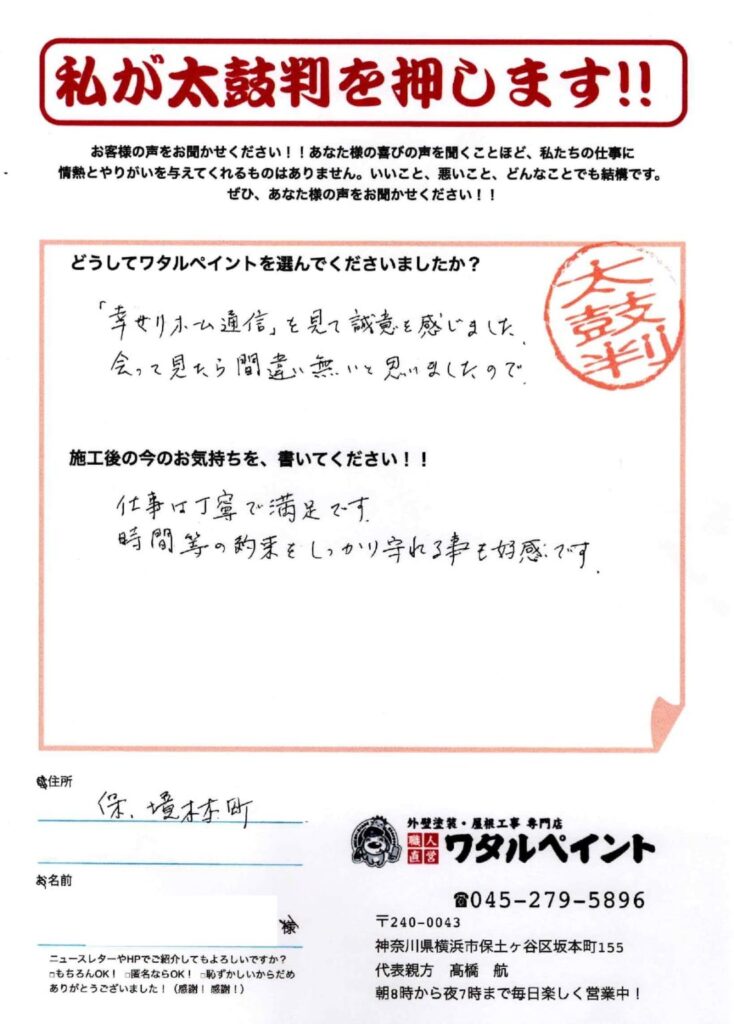 私が太鼓判を押します!!
お客様の声をお聞かせください！！あなた様の喜びの声を聞くことほど、私たちの仕事に
情熱とやりがいを与えてくれるものはありません。いいこと、悪いこと、どんなことでも結構です。
ぜひ、あなた様の声をお聞かせください！！
どうしてワタルペイントを選んでくださいましたか？
太鼓判
「幸せリホーム通信」を見て誠意を感じました.
会って見たら間違い無いと思いましたので.
施工後の今のお気持ちを、書いてください！！
仕事は丁寧で満足です.
時間等の約束をしっかり守れる事も好感です.
ご住所
保.境木本町
お名前
様
ニュースレターやHPでご紹介してもよろしいですか？
□もちろんOK！ □匿名ならOK！ □恥ずかしいからだめ
ありがとうございました！（感謝！感謝！）
外壁塗装・屋根工事 専門店
職人直営 ワタルペイント
☎045-279-5896
〒240-0043
神奈川県横浜市保土ヶ谷区坂本町155
代表親方 髙橋 航
朝8時から夜7時まで毎日楽しく営業中！